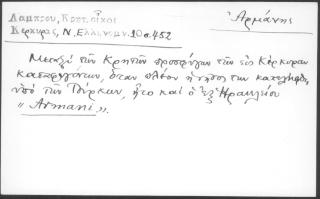 Λαμπρου, Κερκ. οίκοι
Κερκυρας, Ν. Ελληνομν. 10 σ. 452
Ἀρμάνης
Μεταξύ τῶν Κρητῶν προσφύγων τῶν εἰς Κέρκυραν
καταφυγόντων, ὅταν πλέον ἡ νῆσος των κατελήφθη
ὑπό τῶν Τούρκων, ἦτο καί ὁ ἐξ Ἡρακλείου
" Armani ".